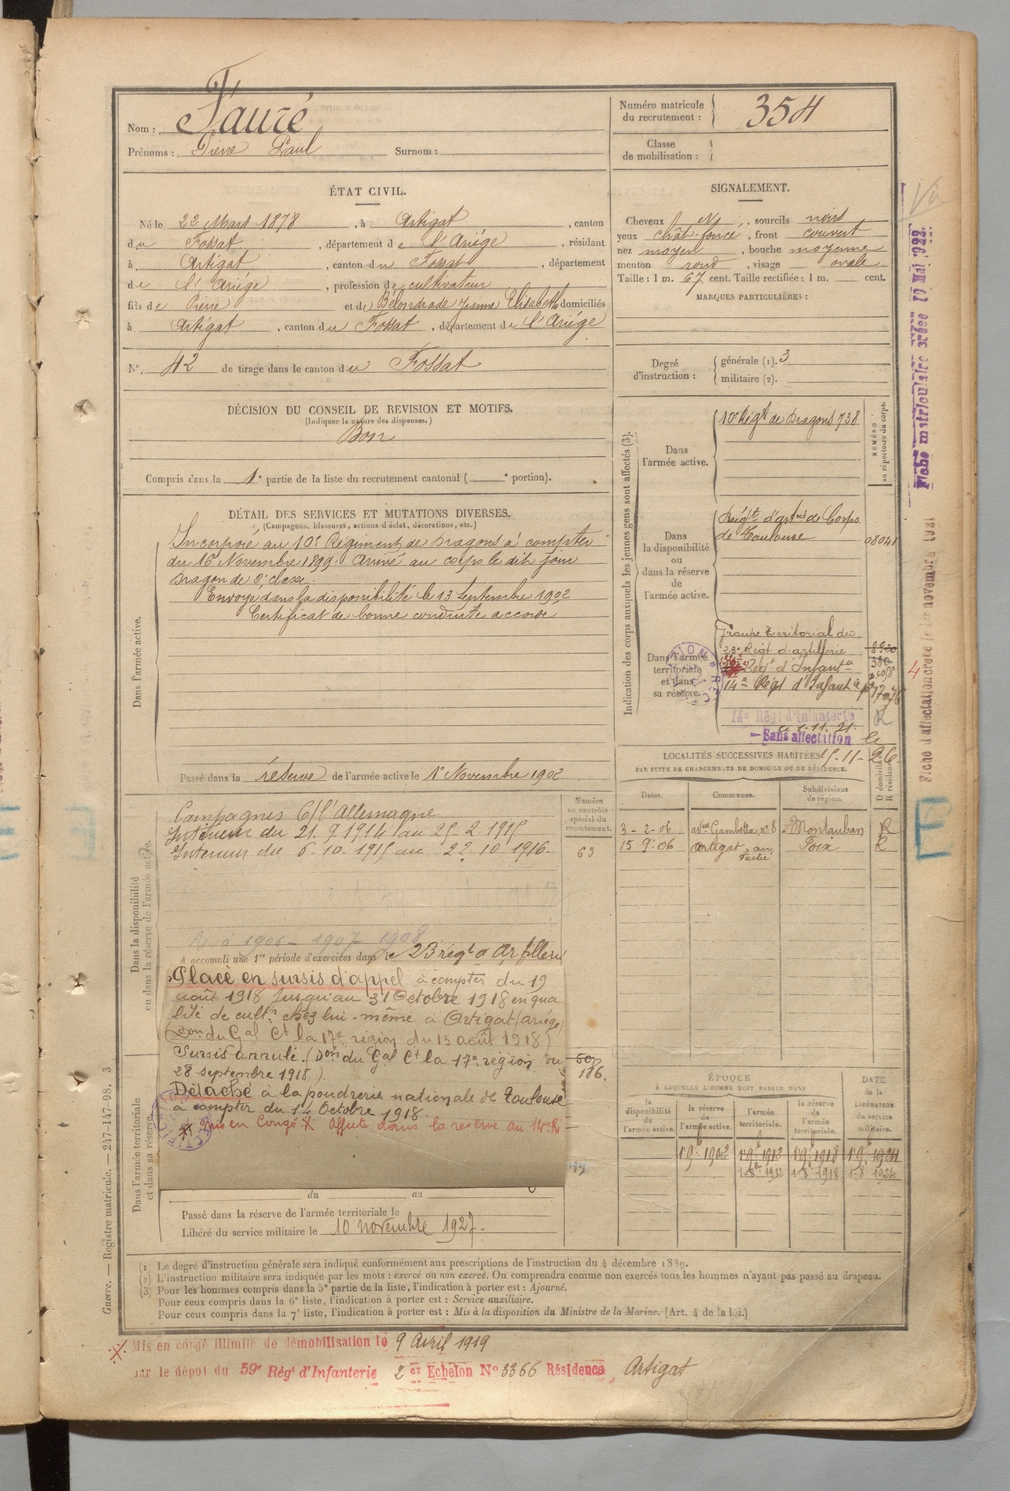 Nom : Fauré
Prénoms : Pierre Paul Surnom :
Numéro matricule du recrutement : 354
Classe de mobilisation :
ÉTAT CIVIL.
Né le 22 Mars 1878, à Artigat, canton
du Fossat, département de l'Ariège, résidant
à Artigat, canton du Fossat, département
de l'Ariège, profession de cultivateur
fils de Pierre et de Bélondrade Jeanne Elisabeth domiciliés
à Artigat, canton du Fossat, département de l'Ariège
N° 42 de tirage dans le canton du Fossat
SIGNALEMENT.
Cheveux N, sourcils noirs
yeux chât. foncé, front couvert
nez moyen, bouche moyenne
menton rond, visage ovale
Taille : 1 m. 67 cent. Taille rectifiée : 1 m. cent.
MARQUES PARTICULIÈRES :
Degré d'instruction : générale (1). 3
militaire (2).
DÉCISION DU CONSEIL DE REVISION ET MOTIFS.
(Indiquer la nature des dispenses.)
Bon
Compris dans la 1e partie de la liste du recrutement cantonal ( e portion).
DÉTAIL DES SERVICES ET MUTATIONS DIVERSES.
(Campagnes, blessures, actions d'éclat, décorations, etc.)
Dans l'armée active.
Incorporé au 10e Régiment de Dragons à compter
du 16 Novembre 1899. Arrivé au corps le dit jour
Dragon de 2e classe.
Envoyé dans la disponibilité le 13 Septembre 1902
Certificat de bonne conduite accordé
Passé dans la réserve de l'armée active le 1er Novembre 1902
Indication des corps auxquels les jeunes gens sont affectés (3).
NUMÉRO au répertoire du corps.
Dans l'armée active.
10e Régt de Dragons 738
Dans la disponibilité ou dans la réserve de l'armée active.
Régt d'artrie de Corps
de Toulouse 08041
Dans l'armée territoriale et dans sa réserve.
Troupe Territorial du
23e Régt d'artillerie
Régt d'Infantie
14e Régt d'Infantie
14e Régt d'Infanterie
le 1.11.21.
Sans affectation
LOCALITÉS SUCCESSIVES HABITÉES
PAR SUITE DE CHANGEMENTS DE DOMICILE OU DE RÉSIDENCE.
Dates. Communes. Subdivisions de région. D domicile R résidence.
3-2-06 Avue Gambetta n° 8 Montauban R
15-9-06 Artigat Foix R
Dans la disponibilité ou dans la réserve de l'armée active.
Numéro au contrôle spécial du recrutement.
63
Campagnes C/ l'Allemagne
Intérieur du 21.9.1914 au 25-2-1915
Intérieur du 6.10.1915 au 22.10.1916.
1906 - 1907 1908
A accompli une 1re période d'exercices dans le 23 régt d'Artillerie
Placé en sursis d'appel à compter du 19
août 1918 jusqu'au 31 Octobre 1918 en qua
lité de cultr chez lui-même à Artigat (Ariège)
(Don du Gal Ct la 17e région du 15 août 1918)
Sursis annulé. (Don du Gal Ct la 17e région du
28 septembre 1918).
Détaché à la poudrerie nationale de Toulouse
à compter du 14 Octobre 1918.
Mis en Congé X Affecté dans la réserve au 14e R
186.
Dans l'armée territoriale et dans sa réserve.
du au
Passé dans la réserve de l'armée territoriale le
Libéré du service militaire le 10 novembre 1927.
ÉPOQUE
À LAQUELLE L'HOMME DOIT PASSER DANS
la disponibilité de l'armée active. la réserve de l'armée active. l'armée territoriale. la réserve de l'armée territoriale.
DATE de la LIBÉRATION DU service militaire.
1 9b 1902 1 9b 1912 1 9b 1918 1 9b 1924
1-8-1912 1-8-1918 1-8-1924
(1) Le degré d'instruction générale sera indiqué conformément aux prescriptions de l'instruction du 4 décembre 1889.
(2) L'instruction militaire sera indiquée par les mots : exercé ou non exercé. On comprendra comme non exercés tous les hommes n'ayant pas passé au drapeau.
(3) Pour les hommes compris dans la 5e partie de la liste, l'indication à porter est : Ajourné.
Pour ceux compris dans la 6e liste, l'indication à porter est : Service auxiliaire.
Pour ceux compris dans la 7e liste, l'indication à porter est : Mis à la disposition du Ministre de la Marine. (Art. 4 de la loi.)
X. Mis en congé illimité de démobilisation le 9 Avril 1919
par le dépôt du 59e Régt d'Infanterie 2 er Echelon N° 3366 Résidence, Artigat
Guerre. — Registre matricule. — 247-147-98. 3
Fiche matriculaire créée 17 Mai 1922.
Fiche d'affectation créée le 1er novembre 1921